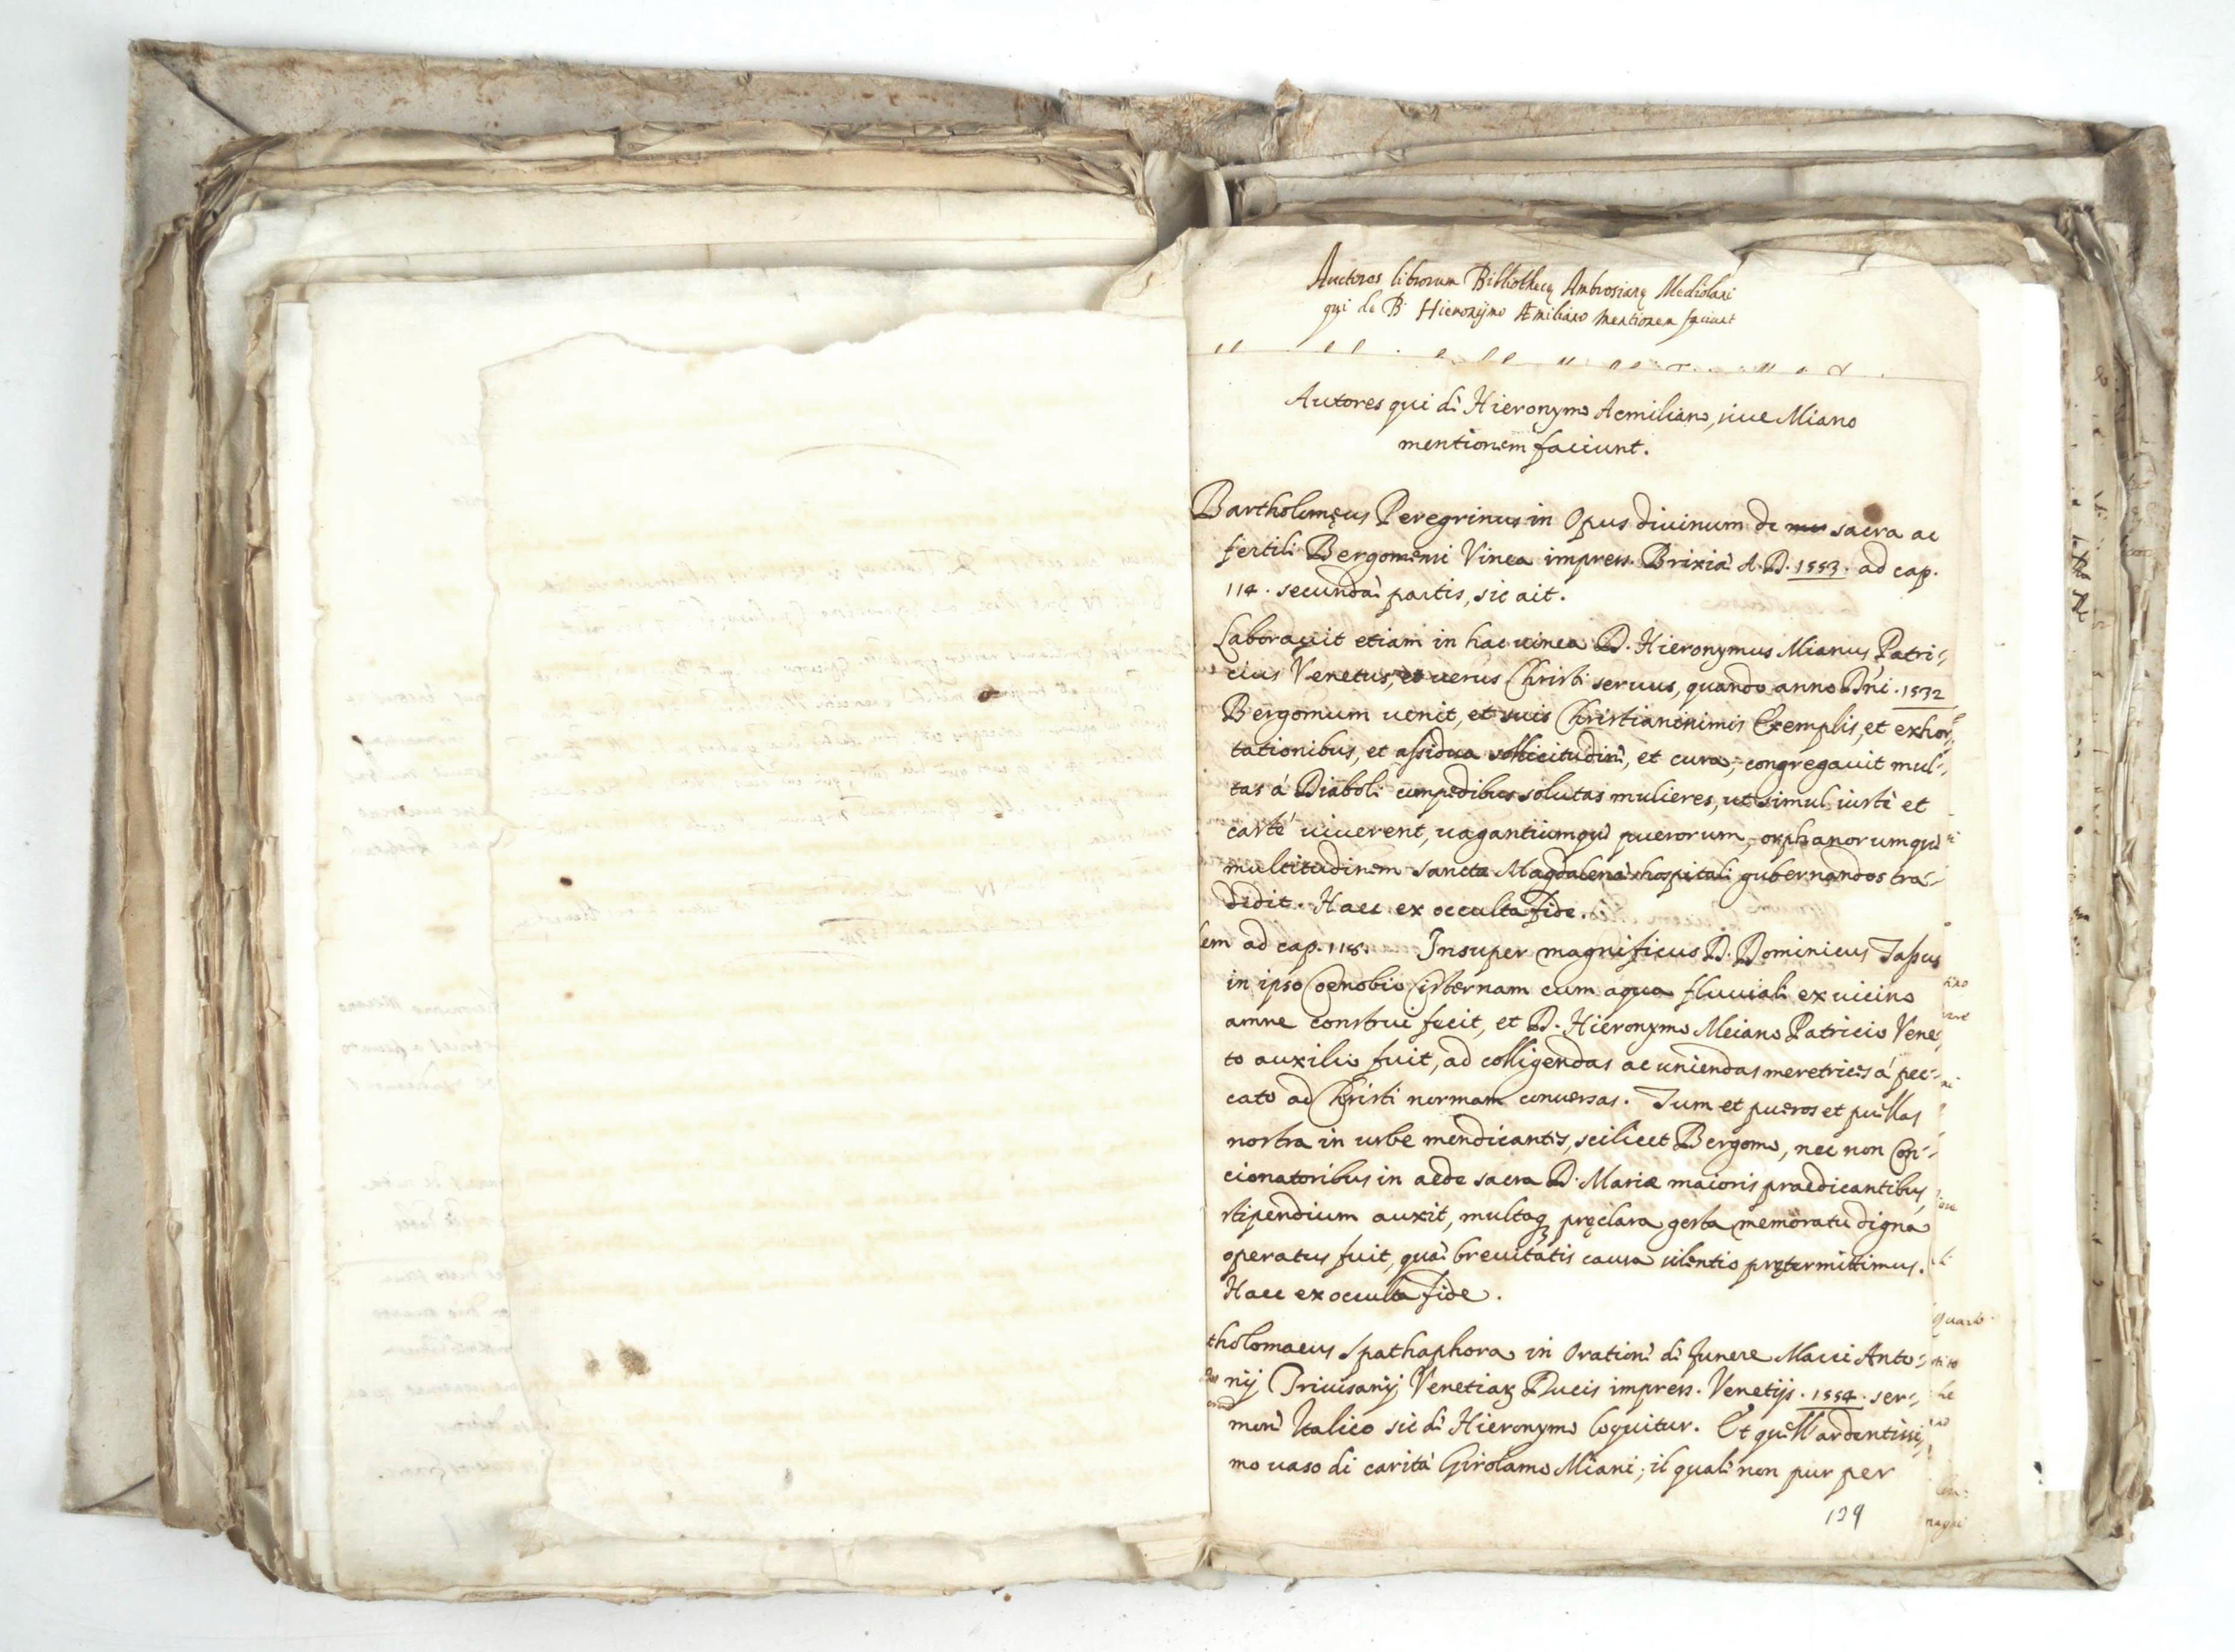 Auctores librorum Bibliothecę Ambrosianę Mediolani
qui de B. Hieronijmo Æmiliano mentionem faciunt
Autores qui dè Hieronymo Aemiliano, siue Miano
mentionem faciunt.
Bartholomęus Peregrinus in Opus diuinum de sacra ac
fertili Bergomensi Vinea impress. Brixiæ A. D. 1553. ad cap.
114. secundæ partis, sic ait.
Laborauit etiam in hac uinea D. Hieronymus Mianus Patri=
cius Venetus, et uerus Christi seruus, quando anno Dñi. 1532
Bergomum uenit, et suis Christianissimis Exemplis, et exhor=
tationibus, et assidua sollicitudine, et cura, congregauit mul=
tas á Diaboli compedibus solutas mulieres, ut simul iustè et
castè uiuerent, uagantiumquè puerorum, orphanorumquè
multitudinem sanctæ Magdalenæ hospitali gubernandos tra=
didit. Haec ex occulta fide.
em ad cap. 118. Insuper magnificus D. Dominicus Tassus
in ipso Coenobio Cisternam cum aqua fluuiali ex uicino
amne construi fecit, et D. Hieronymo Meiano Patricio Vene=
to auxilio fuit, ad colligendas ac uniendas meretrices á pec=
cato ad Christi normam conuersas. Tum et pueros et puellas
nostra in urbe mendicantes, scilicet Bergomo, nec non Con=
cionatoribus in aede sacra D. Mariæ maioris praedicantibus,
stipendium auxit, multaqȝ pręclara gesta memoratu digna
operatus fuit, quæ breuitatis causa silentio prętermittimus.
Haec ex occulta fide.
tholomaeus Spathaphora in Orationè dè funere Marci Anto=
nij Triuisanij Venetiaꝝ Ducis impress. Venetijs. 1554. ser=
monè Italico sic dè Hieronymo loquitur. Et quell'ardentissi=
mo uaso di carità Girolamo Miani; il qualè non pur per
139